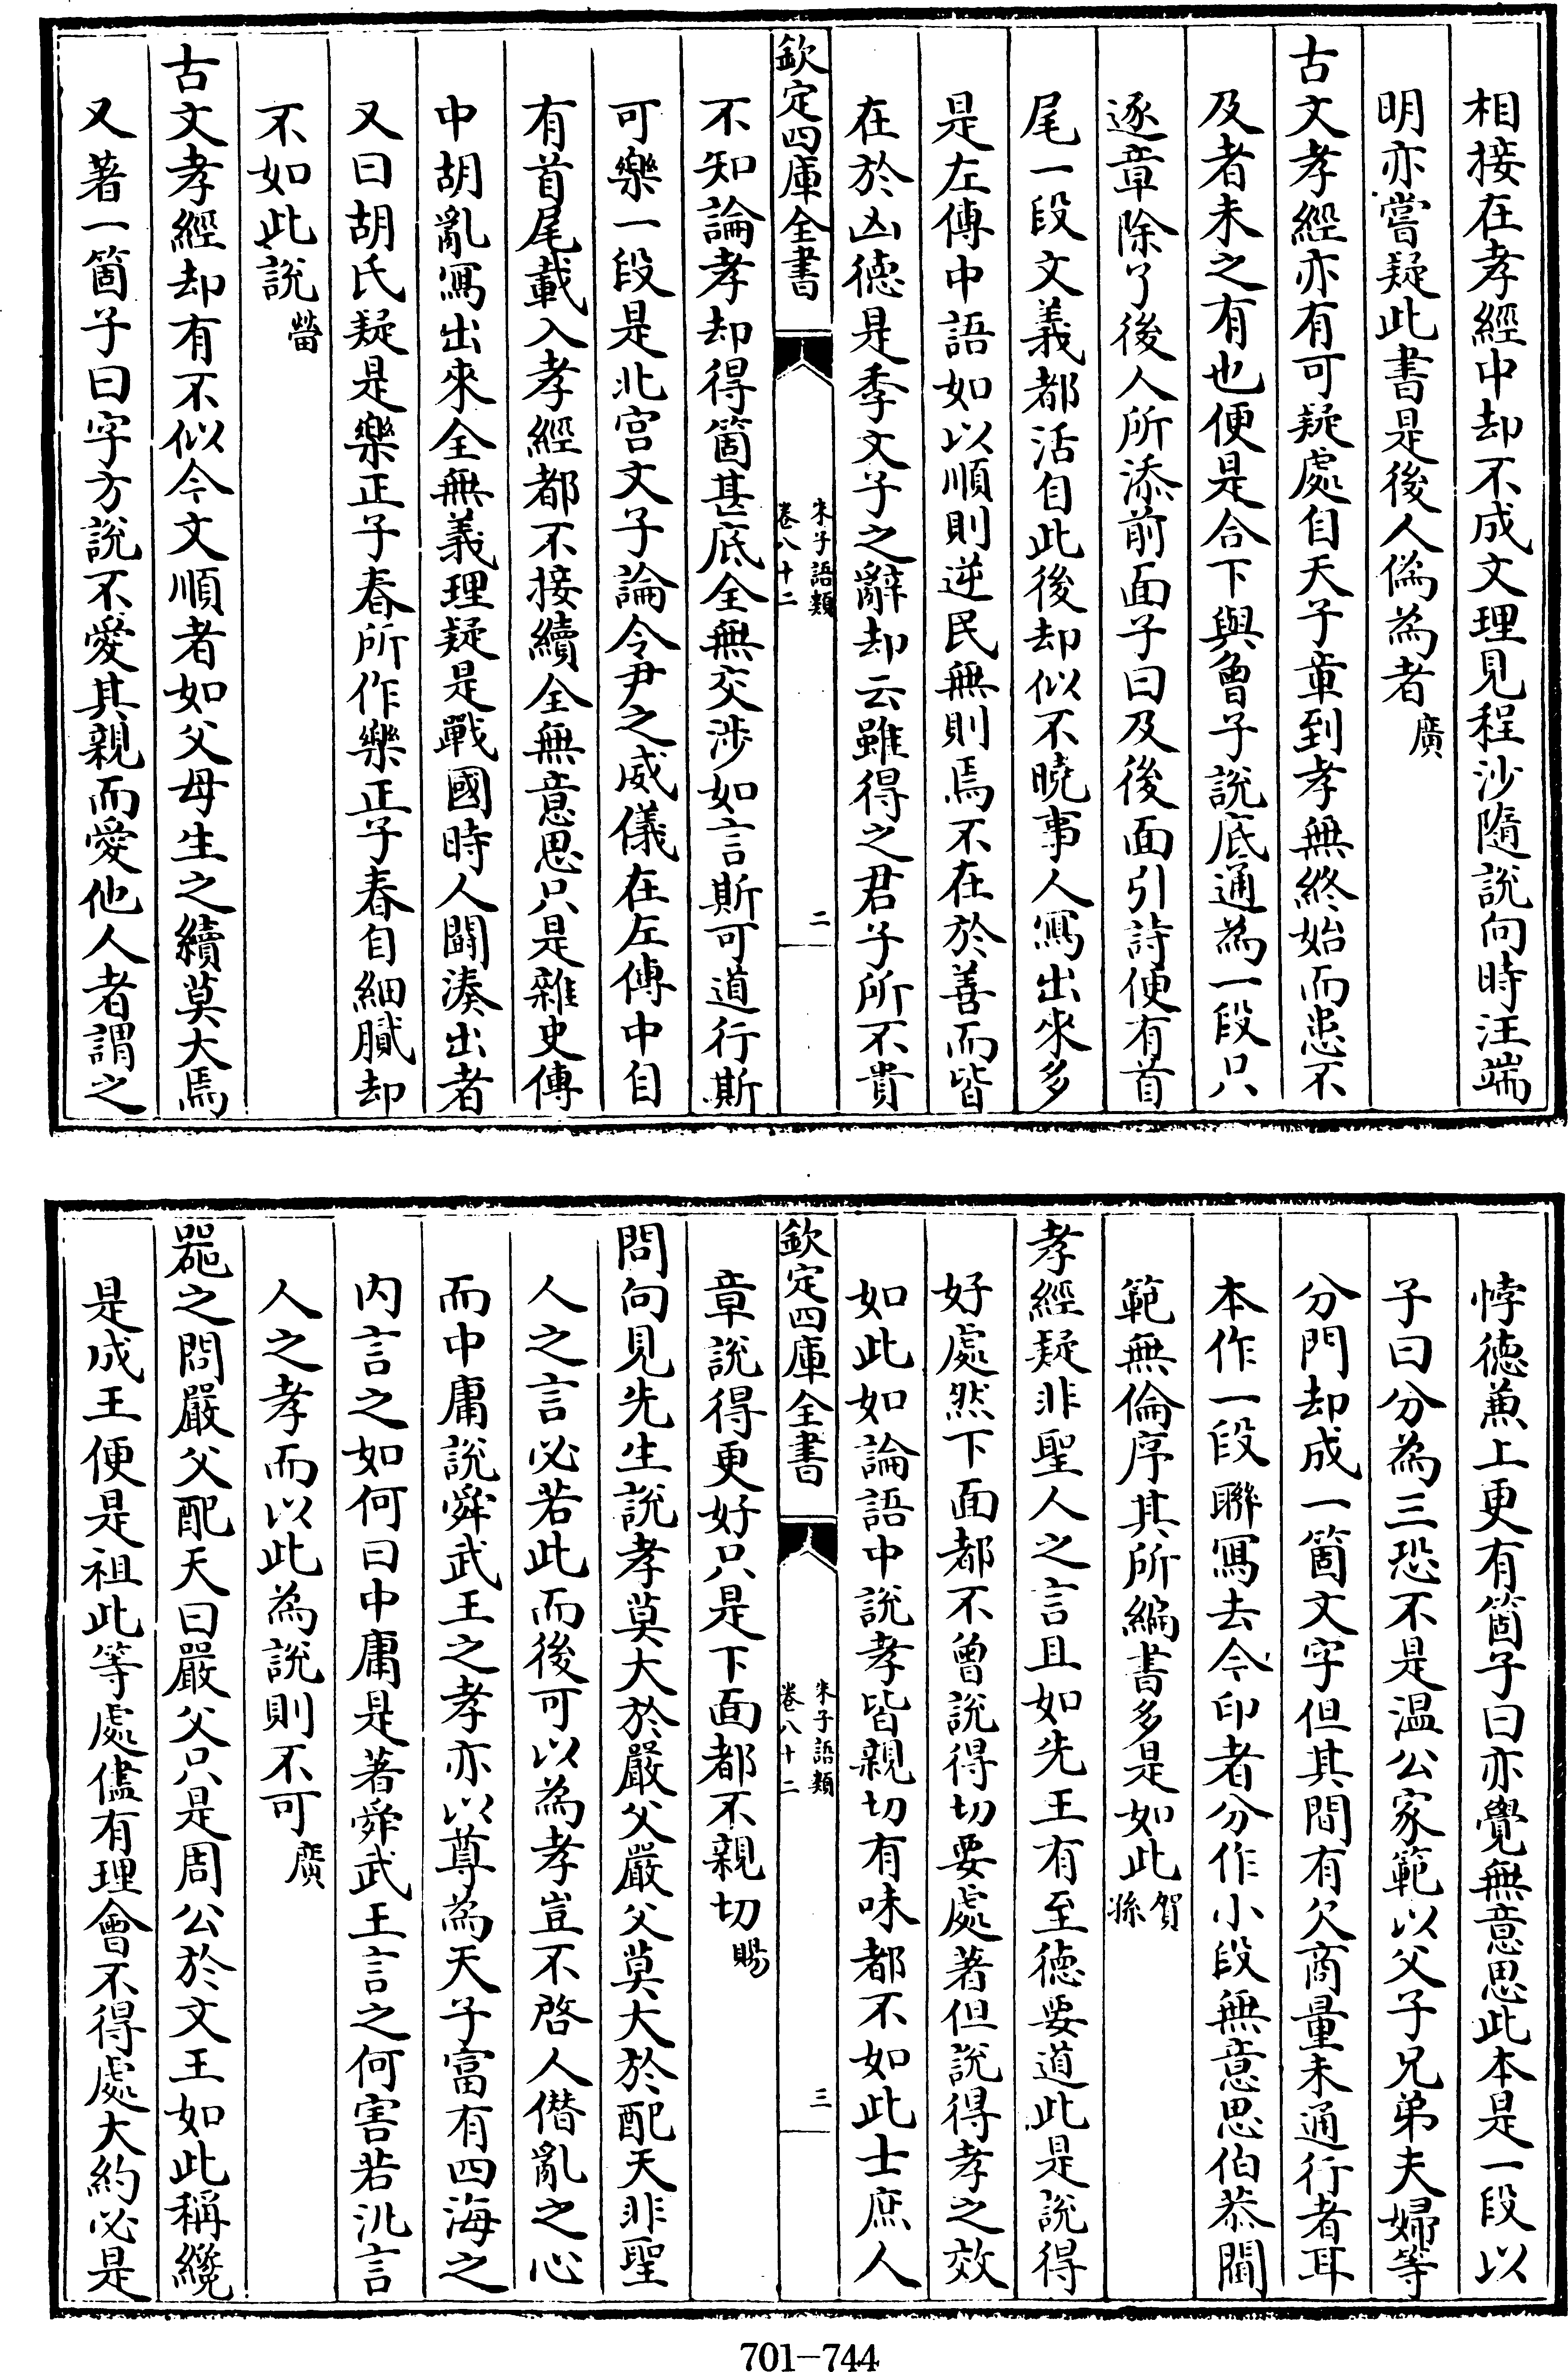 相接在孝經中却不成文理見程沙隨說向時汪端
明亦嘗疑此書是後人偽為者廣
古文孝經亦有可疑處自天子章到孝無終始而患不
及者未之有也便是合下與曾子說底通為一段只
逐章除了後人所添前面子曰及後面引詩便有首
尾一段文義都活自此後却似不曉事人寫出來多
是左傳中語如以順則逆民無則焉不在於善而皆
在於凶德是季文子之辭却云雖得之君子所不貴
欽定四庫全書
朱子語類
卷八十二
二
不知論孝却得箇甚底全無交涉如言斯可道行斯
可樂一段是北宫文子論令尹之威儀在左傳中自
有首尾載入孝經都不接續全無意思只是雜史傳
中胡亂寫出來全無義理疑是戰國時人鬭湊出者
又曰胡氏疑是樂正子春所作樂正子春自細膩却
不如此說㽦
古文孝經却有不似今文順者如父母生之續莫大焉
又著一箇子曰字方說不愛其親而愛他人者謂之
悖德兼上更有箇子曰亦覺無意思此本是一段以
子曰分為三恐不是温公家範以父子兄弟夫婦等
分門却成一箇文字但其間有欠商量未通行者耳
本作一段聯寫去今印者分作小段無意思伯恭閫
範無倫序其所編書多是如此賀孫
孝經疑非聖人之言且如先王有至德要道此是說得
好處然下面都不曾說得切要處著但說得孝之效
如此如論語中說孝皆親切有味都不如此士庶人
欽定四庫全書
朱子語類
卷八十二
三
章說得更好只是下面都不親切賜
問向見先生說孝莫大於嚴父嚴父莫大於配天非聖
人之言必若此而後可以為孝豈不啓人僣亂之心
而中庸說舜武王之孝亦以尊為天子富有四海之
内言之如何曰中庸是著舜武王言之何害若汎言
人之孝而以此為說則不可廣
器之問嚴父配天曰嚴父只是周公於文王如此稱纔
是成王便是祖此等處儘有理會不得處大約必是
701—744